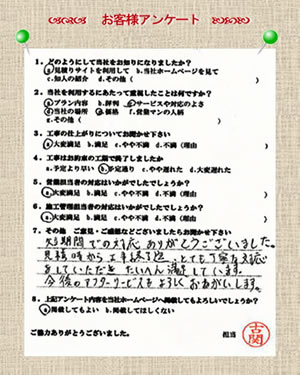 お客様アンケート
1．どのようにして当社をお知りになりましたか？
a.見積りサイトを利用して b.当社ホームページを見て
c.知人の紹介 d.その他（ ）
2．当社を利用するにあたって重視したことは何ですか？
a.プラン内容 b.評判 c.サービスや対応のよさ
d.当社の場所 e.価格 f.営業マンの人柄
g.その他（ ）
3．工事の仕上がりについてお聞かせ下さい
a.大変満足 b.満足 c.やや不満 d.不満（理由 ）
4．工事はお約束の工期で終了しましたか
a.予定より早い b.予定通り c.やや遅れた d.大変遅れた
5．営業担当者の対応はいかがでしたでしょうか？
a.大変満足 b.満足 c.やや不満 d.不満（理由 ）
6．施工管理担当者の対応はいかがでしたでしょうか？
a.大変満足 b.満足 c.やや不満 d.不満（理由 ）
7．その他 ご意見・ご感想などございましたらお聞かせ下さい
短期間での対応 ありがとうございました。
見積時から工事終了迄、とても丁寧な対応
をしていただき たいへん満足しています。
今後のアフターサービスもよろしくおねがいします。
8．上記アンケート内容を当社ホームページへ掲載してもよろしいでしょうか？
a.掲載してもよい b.掲載してほしくない
ご協力ありがとうございました。 担当 古関